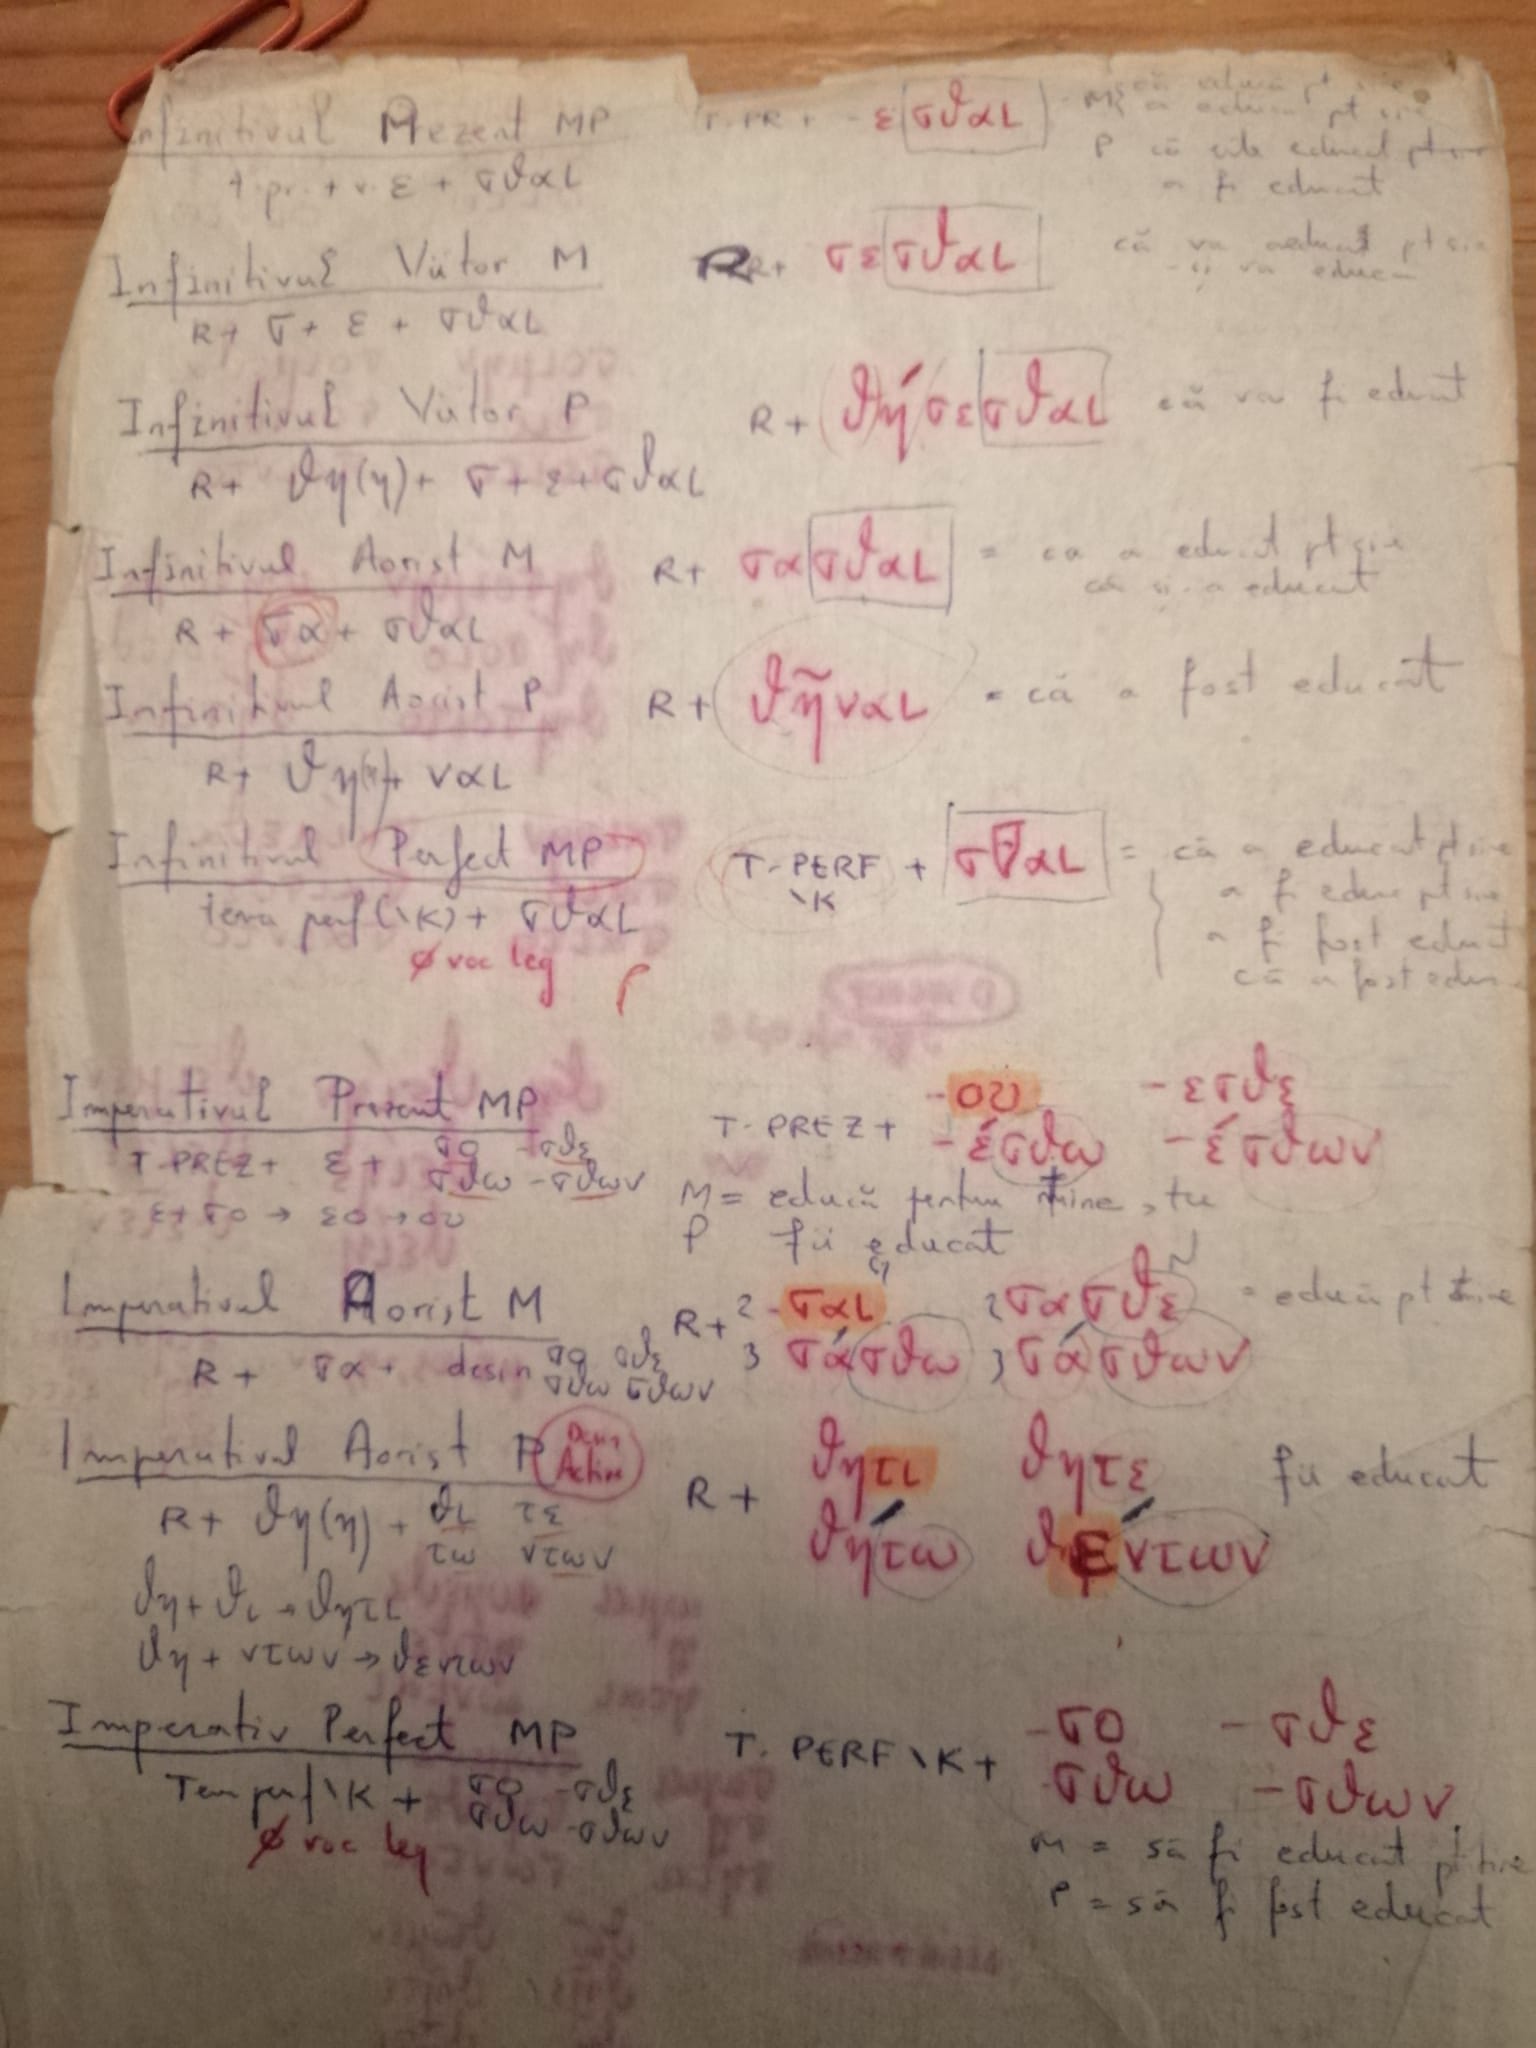 Infinitivul Prezent MP T.PR + - ε σϑαι
a educa pt sine
t.pr. + v. ε + σϑαι
P că este educat
a fi educat
Infinitivul Viitor M R+ σε σϑαι că va educa pt sine
R + σ + ε + σϑαι
Infinitivul Viitor P R + ϑήσε σϑαι că va fi educat
R + ϑη(η) + σ + ε + σϑαι
Infinitivul Aorist M R + σα σϑαι = că a educat pt sine
că și-a educat
R + σα + σϑαι
Infinitivul Aorist P R + ϑῆναι = că a fost educat
R + ϑη(η) + ναι
Infinitivul Perfect MP T-PERF \K + σϑαι = că a educat pt sine
a fi educ pt sine
tema perf(\K) + σϑαι a fi fost educat
ø voc leg că a fost educ
Imperativul Prezent MP T-PREZ + -ου -εσϑε
T-PREZ + ε + σο -σϑε -έσϑω -έσϑων
σϑω -σϑων
ε+σο → εο → ου M = educă pentru tine, tu
P fii educat
Imperativul Aorist M R + 2 -σαι 2 σασϑε = educă pt tine
R + σα + desin σο σϑε 3 σάσϑω 3 σάσϑων
σϑω σϑων
Imperativul Aorist P Desin Active R + ϑητι ϑητε fii educat
R + ϑη(η) + ϑι τε ϑήτω ϑέντων
τω ντων
ϑη + ϑι → ϑητι
ϑη + ντων → ϑεντων
Imperativ Perfect MP T. PERF \K + -σο -σϑε
Tem perf \K + σο -σϑε -σϑω -σϑων
σϑω -σϑων
ø voc leg M = să fi educat pt tine
P = să fi fost educat